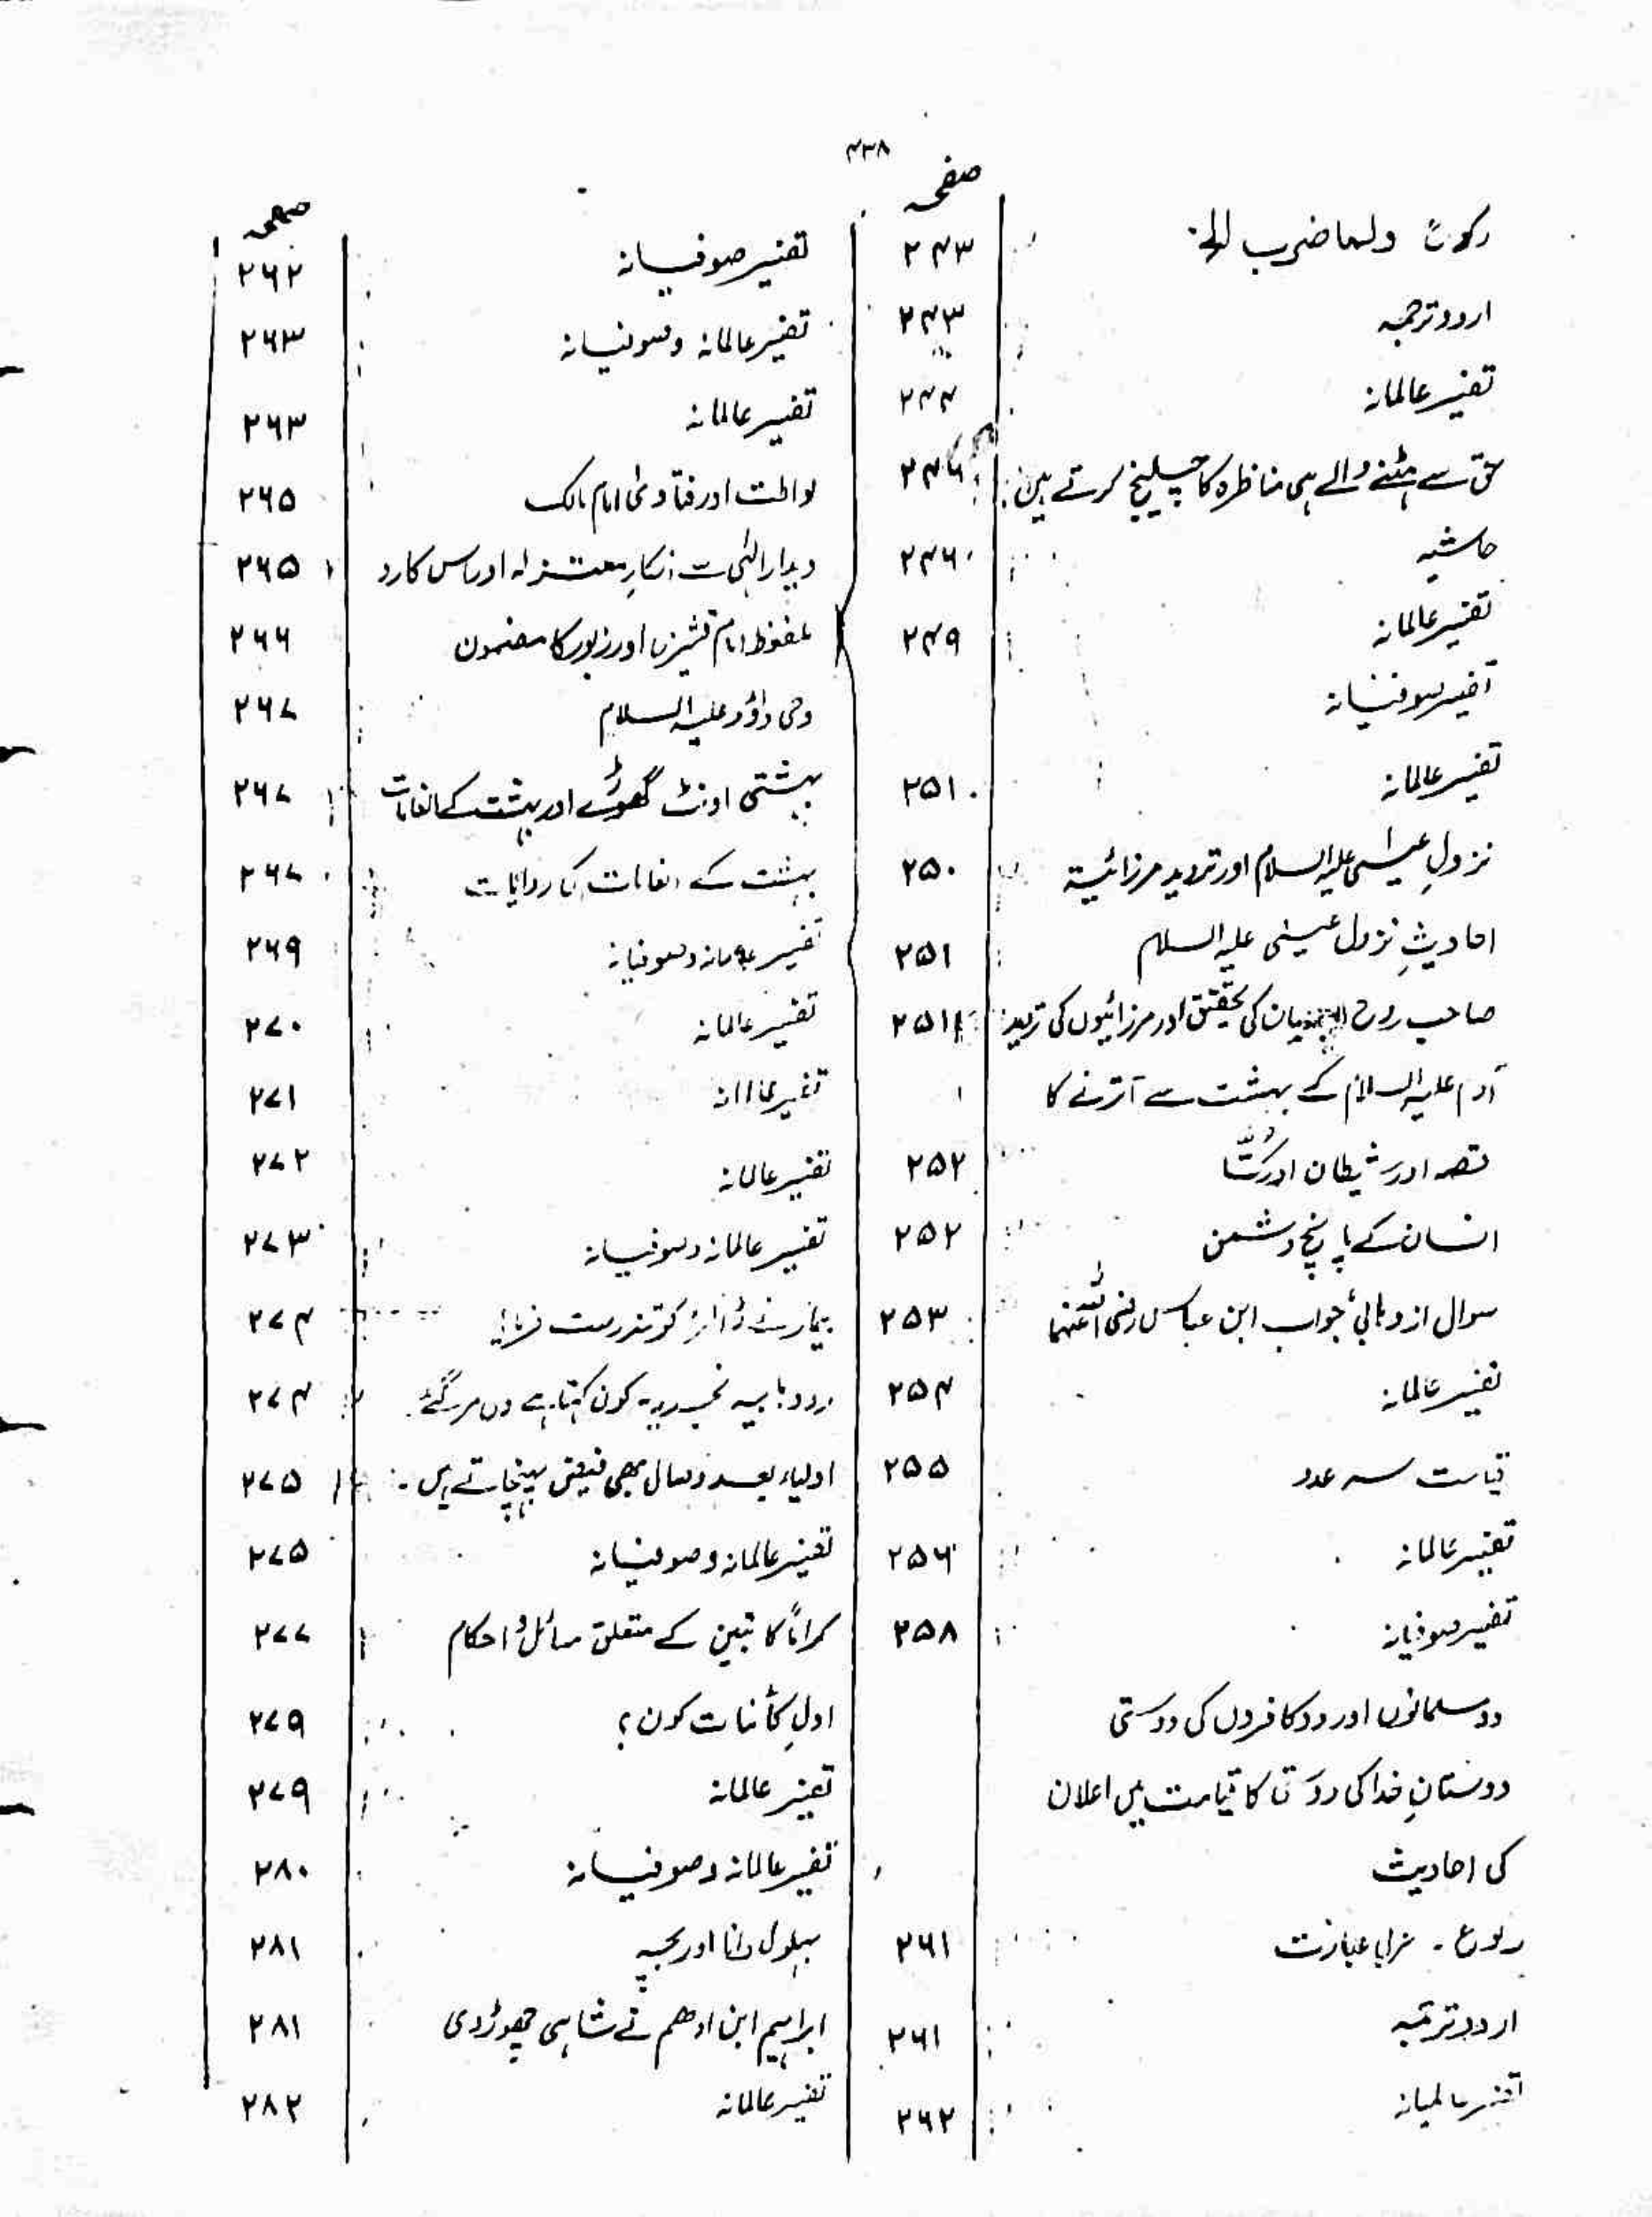 ۴۳۸
صفحہ
رکوع ولما ضرب الخ ۲۴۳
اردو ترجمہ ۲۴۳
تفسیر عالمانہ ۲۴۴
حق سے ہٹنے والے ہی مناظرہ کا چیلنج کرتے ہیں ۲۴۶
حاشیہ ۲۴۶
تفسیر عالمانہ ۲۴۹
تفسیر صوفیانہ
تفسیر عالمانہ ۲۵۱
نزولِ عیسیٰ علیہ السلام اور تردید مرزائیۃ ۲۵۰
احادیثِ نزول عیسیٰ علیہ السلام ۲۵۱
صاحب روح البیان کی تحقیق اور مرزائیوں کی تردید ۲۵۱
آدم علیہ السلام کے بہشت سے اترنے کا
قصہ اور شیطان اور کتّا ۲۵۲
انسان کے پانچ دشمن ۲۵۲
سوال از وہابی جواب ابن عباس رضی اللہ عنہما ۲۵۳
تفسیر عالمانہ ۲۵۴
قیامت سہ عدد ۲۵۵
تفسیر عالمانہ ۲۵۶
تفسیر صوفیانہ ۲۵۸
دو مسلمانوں اور دو کافروں کی دوستی
دوستانِ خدا کی دوستی کا قیامت میں اعلان
کی احادیث
رکوع - عبادت ۲۶۱
اردو ترجمہ ۲۶۱
تفسیر عالمیانہ ۲۶۲
صفحہ
تفسیر صوفیانہ ۲۶۲
تفسیر عالمانہ وصوفیانہ ۲۶۳
تفسیر عالمانہ ۲۶۳
لواطت اور فتاویٰ امام مالک ۲۶۵
دیدار الٰہی سے انکارِ معتزلہ اور اس کا رد ۲۶۵
ملفوظ امام قشیری اور زبور کا مضمون ۲۶۶
وحی داؤد علیہ السلام ۲۶۷
بہشتی اونٹ گھوڑے اور بہشت کے انعامات ۲۶۷
بہشت کے انعامات کی روایات ۲۶۷
تفسیر عالمانہ وصوفیانہ ۲۶۹
تفسیر عالمانہ ۲۷۰
تفسیر عالمانہ ۲۷۱
تفسیر عالمانہ ۲۷۲
تفسیر عالمانہ وصوفیانہ ۲۷۳
بیمار نے ڈاکٹر کو تندرست فرمایا ۲۷۴
رد وہابیہ نجدیہ - کون کہتا ہے ولی مر گئے ۲۷۴
اولیاء بعد وصال بھی فیض پہنچاتے ہیں - ۲۷۵
تفسیر عالمانہ وصوفیانہ ۲۷۵
کراماً کاتبین کے متعلق مسائل و احکام ۲۷۷
اولِ کائنات کون؟ ۲۷۹
تفسیر عالمانہ ۲۷۹
تفسیر عالمانہ وصوفیانہ ۲۸۰
بہلول دانا اور بچہ ۲۸۱
ابراہیم ابن ادھم نے شاہی چھوڑ دی ۲۸۱
تفسیر عالمانہ ۲۸۲